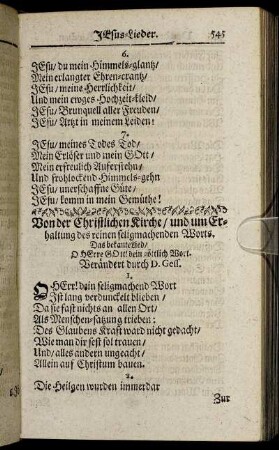 JEsus-Lieder. 545
6.
JEsu/ du mein Himmels-glantz/
Mein erlangter Ehren-crantz/
JEsu/ meine Herrlichkeit/
Und mein ewges Hochzeit-kleid/
JEsu/ Brunquell aller Freuden/
JEsu/ Artzt in meinem Leiden!
7.
JEsu/ meines Todes Tod/
Mein Erlöser und mein GOtt/
Mein erfreulich Auferstehn/
Und frohlockend Himmels-gehn
JEsu/ unerschaffne Güte/
JEsu/ komm in mein Gemüthe!
Von der Christlichen Kirche/ und um Er-
haltung des reinen seligmachenden Worts.
Das bekante Lied/
O HErre GOtt! dein göttlich Wort.
Verändert durch D. Gess.
1.
O HErr! dein seligmachend Wort
Ist lang verdunckelt blieben/
Da sie fast nichts an allen Ort/
Als Menschen-satzung trieben:
Des Glaubens Kraft ward nicht gedacht/
Wie man dir fest sol trauen/
Und/ alles andern ungeacht/
Allein auf Christum bauen.
2.
Die Heilgen wurden immerdar
Zur